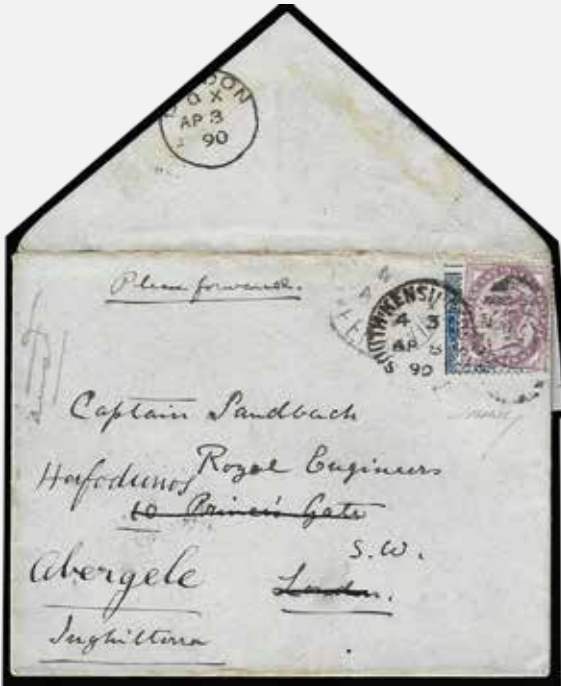 LONDON
X
AP 3
90
Please forward.
SOUTH KENSI
4 3
AP 3
90
Captain Sandbach
Royal Engineers
Hafodunos
10 Princes Gate
S.W.
Abergele
London.
Inghilterra